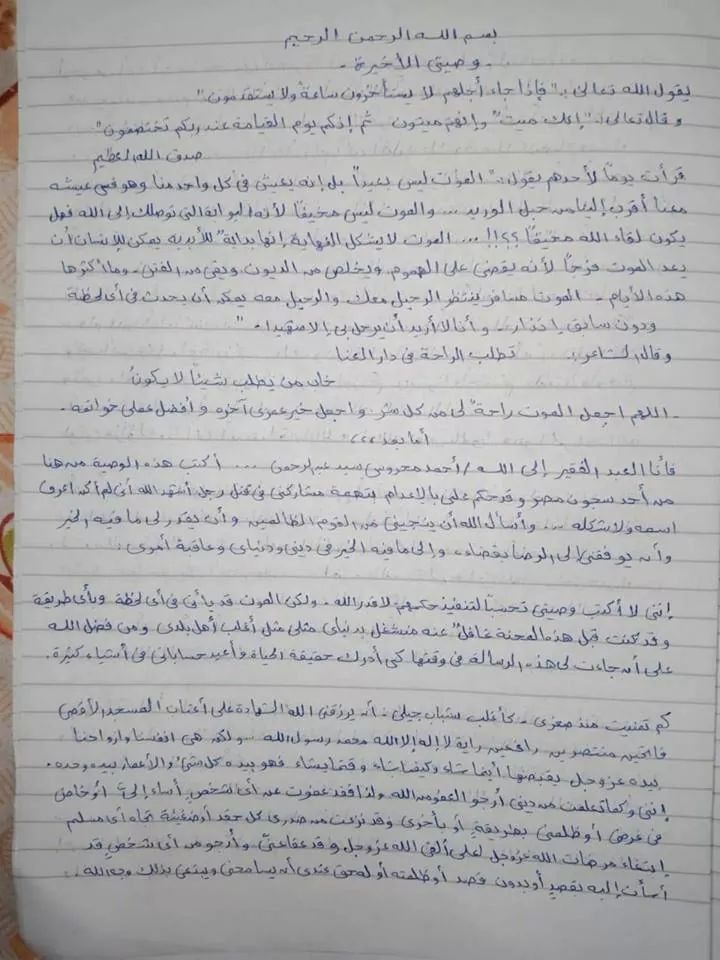 بسم الله الرحمن الرحيم
- وصيتي الأخيرة -
يقول الله تعالى :- "فإذا جاء أجلهم لا يستأخرون ساعة ولا يستقدمون"
و قال تعالى :- "إنك ميت" وإنهم ميتون ثم إنكم يوم القيامة عند ربكم تختصمون"
صدق الله العظيم
قرأت يوماً لأحدهم يقول :- "الموت ليس بعيداً بل إنه يعيش في كل واحد منا وهو في عيشه
معنا أقرب إلينا من حبل الوريد ... والموت ليس مخيفاً لأنه البوابة التي توصلك إلى الله فهل
يكون لقاء الله مخيفاً ؟؟!! ... الموت لا يشكل النهاية إنها بداية" للأبدية يمكن للإنسان أن
يعد الموت فرجاً لأنه يقضي على الهموم ويخلص من الديون ويقي من الفتن - وما أكثرها
هذه الأيام - الموت مسافر ينتظر الرحيل معك والرحيل معه يمكن أن يحدث في أي لحظة
ودون سابق إنذار - وأنا لا أريد أن يرحل بي إلا شهيداً - "
وقال الشاعر : تطلب الراحة في دار العنا
خاب من يطلب شيئاً لا يكونُ
- اللهم اجعل الموت راحة لي من كل شر واجعل خير عمري آخره وأفضل عملي خواتمه -
أما بعد ،،،
فأنا العبد الفقير إلى الله / أحمد محروس سيد عبدالرحمن ... أكتب هذه الوصية من هنا
من أحد سجون مصر وقد حكم علي بالإعدام بتهمة مشاركتي في قتل رجل أشهد الله أني لم أكن أعرف
اسمه ولا شكله ... وأسأل الله أن ينجيني من القوم الظالمين وأن يقدر لي ما فيه الخير
وأن يوفقني إلى الرضا بقضاءه وإلى ما فيه الخير في ديني ودنياي وعاقبة أمري :
إنني لا أكتب وصيتي تحسباً لتنفيذ حكمهم لا قدر الله - ولكن الموت قد يأتي في أي لحظة وبأي طريقة
وقد كنت قبل هذه المحنة غافلٌ عنه منشغل بدنياي مثلي مثل أغلب أهل بلدي ومن فضل الله
علي أن جاءت لي هذه الرسالة في وقتها كي أدرك حقيقة الحياة وأعيد حساباتي في أشياء كثيرة .
كم تمنيت منذ صغري - كأغلب شباب جيلي - أن يرزقني الله الشهادة على أعتاب المسجد الأقصى
فاتحين منتصرين رافعين راية لا إله إلا الله محمد رسول الله - ولكن هي أنفسنا وأرواحنا
بيده عز وجل يقبضها أينما شاء وكيفما شاء ووقتما يشاء فهو بيده كل شئ والأعمار بيده وحده .
إنني وكما تعلمت من ديني أرجو العفو من الله ولذا فقد عفوت عن أي شخص أساء إليّ أو خاض
في عرضي أو ظلمني بطريقة أو بأخرى وقد نزعت من صدري كل حقد أو ضغينة تجاه أي مسلم
إبتغاء مرضات الله عز وجل لعلي ألقى الله عز وجل وقد عفا عني وأرجو من أي شخص قد
أسأت إليه بقصد أو بدون قصد أو ظلمته أو له حق عندي أن يسامحني ويبتغي بذلك وجه الله .